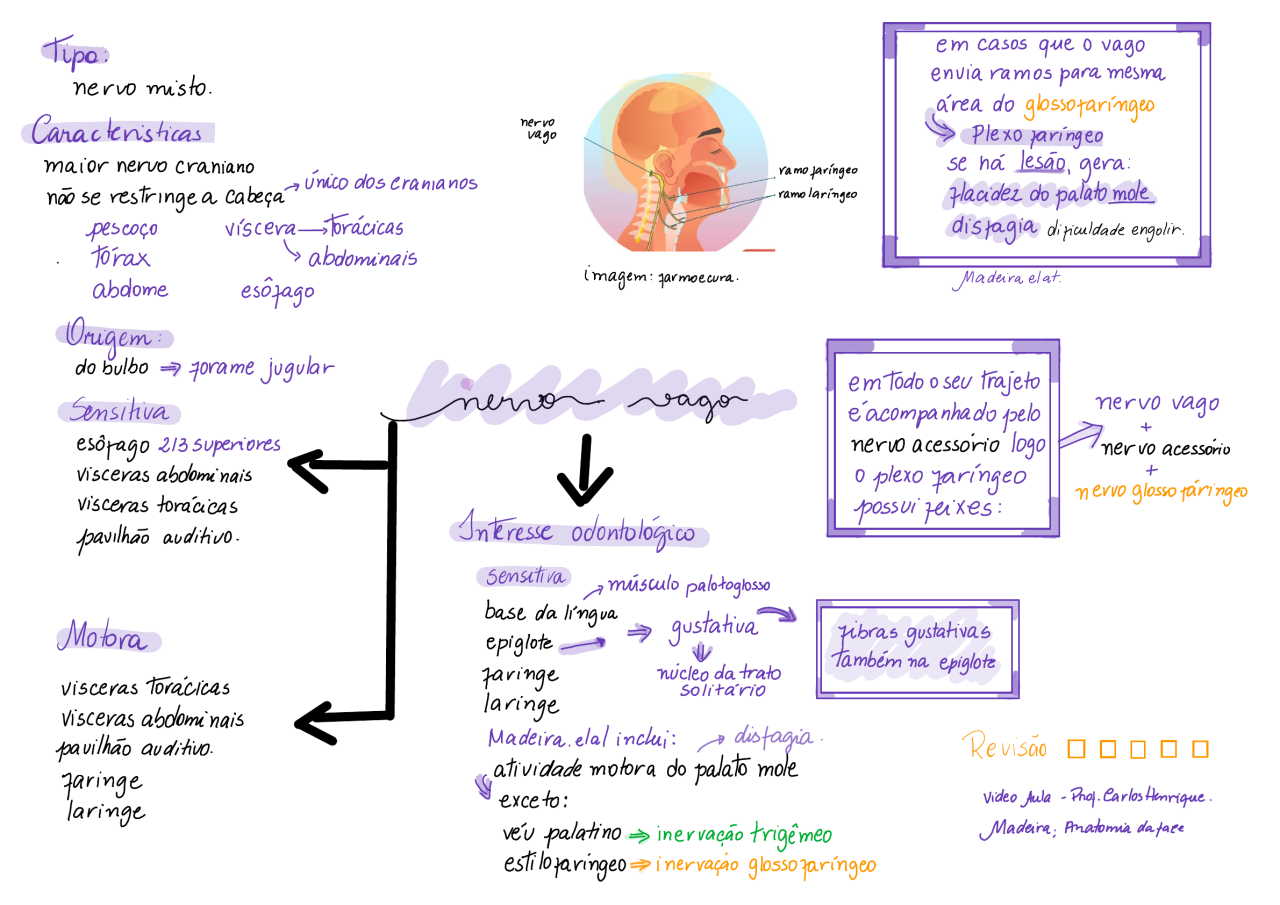 Tipo:
nervo misto.
Características
maior nervo craniano
não se restringe a cabeça → único dos cranianos
pescoço víscera → torácicas
tórax → abdominais
abdome esôfago
Origem:
do bulbo ⇒ forame jugular
Sensitiva
esôfago 2/3 superiores
vísceras abdominais
vísceras torácicas
pavilhão auditivo.
Motora
vísceras torácicas
vísceras abdominais
pavilhão auditivo.
faringe
laringe
nervo
vago
ramo faríngeo
ramo laríngeo
imagem: farmoecura.
nervo vago
Interesse odontológico
Sensitiva
músculo palotoglosso
base da língua
epiglote ⇒ gustativa
faringe
laringe
núcleo da trato
solitário
fibras gustativas
também na epiglote
Madeira.elal inclui: → disfagia.
atividade motora do palato mole
exceto:
véu palatino ⇒ inervação trigêmeo
estilofaríngeo ⇒ inervação glossofaríngeo
em casos que o vago
envia ramos para mesma
área do glossofaríngeo
Plexo faríngeo
se há lesão, gera:
flacidez do palato mole
disfagia dificuldade engolir.
Madeira elat.
em todo o seu trajeto
é acompanhado pelo
nervo acessório logo
o plexo faríngeo
possui feixes:
nervo vago
+
nervo acessório
+
nervo glossofaríngeo
Revisão □ □ □ □ □
Video Aula - Prof. Carlos Henrique.
Madeira; Anatomia da face